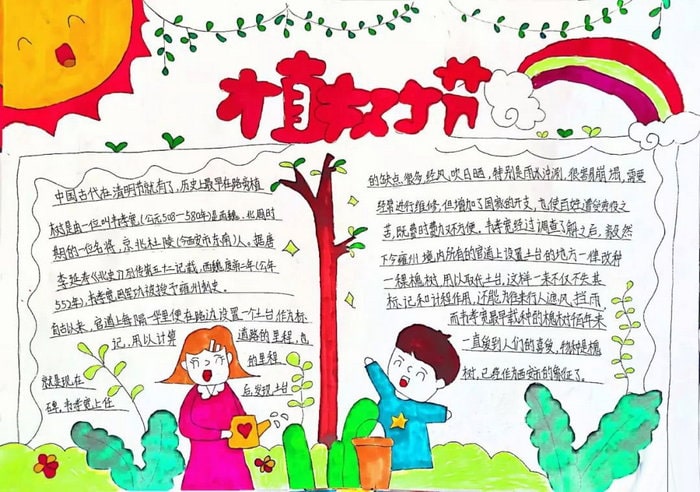 植树节
中国古代在清明节就有了,历史上最早在路旁植
树是由一位叫韦孝宽(公元508—580年)是西魏、北周时
期的一位名将,京兆杜陵(今西安市东南)人。据唐
李延寿《北史》列传第五十二记载,西魏废帝二年(公年
552年),韦孝宽因军功被授予雍州刺史。
自古以来,官道上每隔一华里便在路边设置一个土台作为标
记,用以计算 道路的里程,也
就是现在 的里程
碑。韦孝宽上任 后,发现土台
的缺点
经风吹日晒,特别是雨水冲刷,很容易崩塌,需要
经常进行维修,不但增加了国家的开支,也使百姓遭受劳役之
苦,既费时费力又不方便。韦孝宽经过调查了解之后,毅然
下令雍州境内所有的官道上设置土台的地方一律改种
一棵槐树,用以取代土台,这样一来不仅不失其
标记和计程作用,还能为往来行人遮风挡雨,
而韦孝宽最早栽种的槐树
一直受到人们的喜爱,
树,已经作为西安市的象征了。